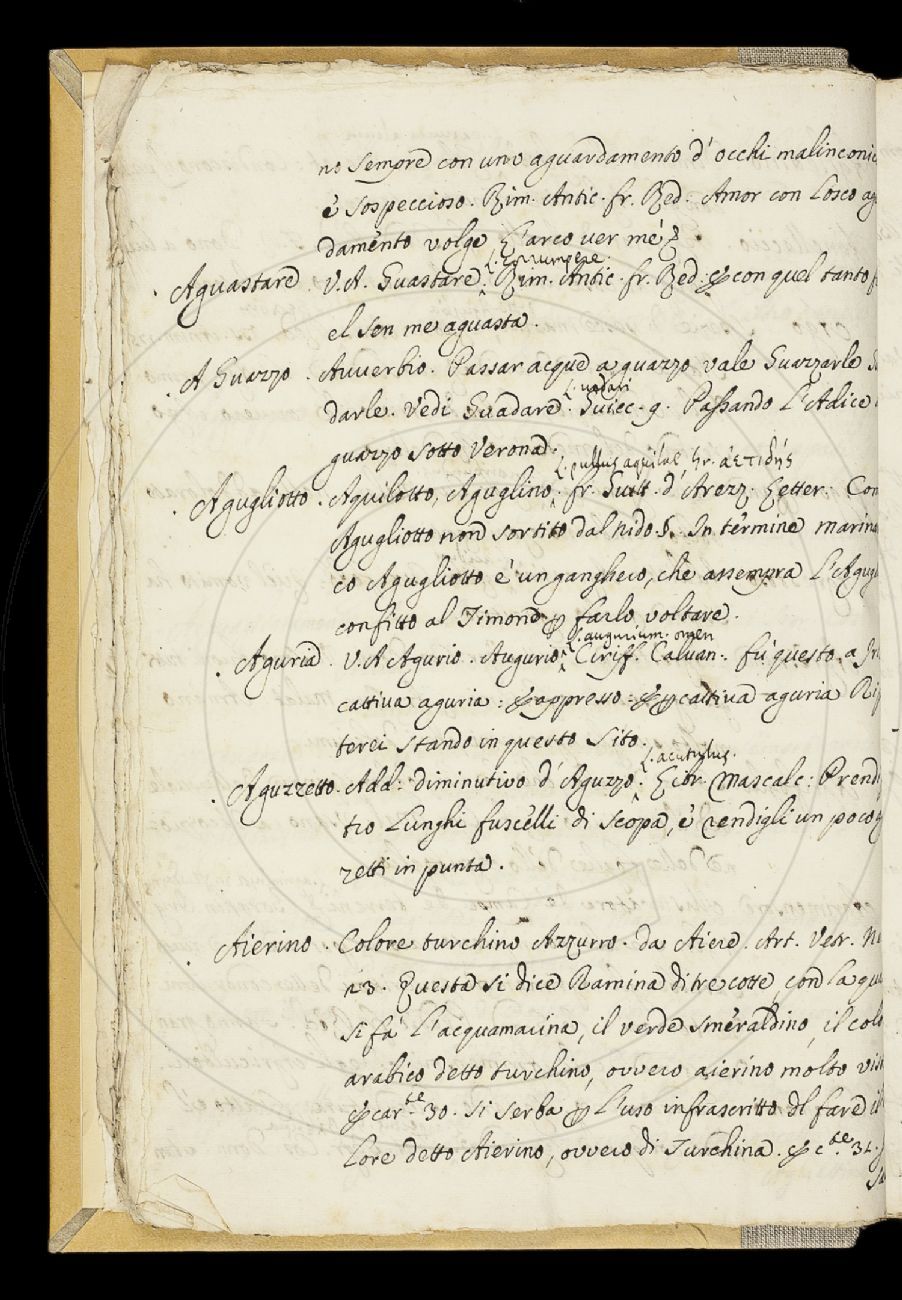 no sempre con uno aguardamento d' occhi malinconic
è sospeccioso. Rim. Antic. fr. Red. Amor con losco ag
damento volge l'arco ver me
L. corrumpere.
Aguastare. V. A. Guastare. Rim. Antic. fr. Red: & con quel tanto
el sen me aguasta.
A Guazzo. Avverbio. Passar acque a guazzo vale Guazzarle
L. vadari
darle. Vedi Guadare. Guicc. g. Passando l'Adice
guazzo sotto Verona.
L. pullus aquilae Gr. ἀετιδής
Agugliotto. Aquilotto, Aguglino. fr. Guitt. d'Arezz. Letter: Com
Agugliotto non sortito dal nido. §. In termine marina
co Agugliotto è un ganghero, che assempra l'Agugl
confitto al Timone p farlo voltare.
L. augurium. omen
Aguria. V. A Agurio. Augurio. Ciriff. Calvan: fù questo a
cattiva aguria: & appresso: & p cattiva aguria Rip
terei stando in questo sito.
L. acutulus.
Aguzzetto. Add: diminutivo d' Aguzzo. Libr. Mascalc: Prend
tro lunghi fuscelli di scopa, è rendigli un poco
zetti in punta.
Aierino. Colore turchino Azzurro. da Aiere. Art. Vetr. N
13. Questa si dice Ramina di tre cotte, con la qu
si fà l'acquamarina, il verde smeraldino, il colo
arabico detto turchino, ovvero aierino molto vis
& car.te 30. si serba p l'uso infrascritto dl fare il
lore detto Aierino, ovvero di Turchina. & c.te 31.